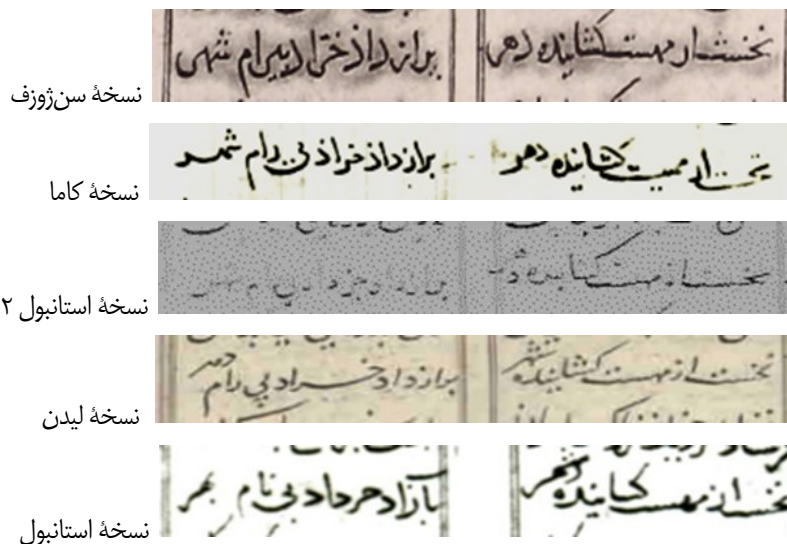 نخست از مهست کشاینده دهر براز داذ خرّاد بیرام شهی
نسخهٔ سن‌ژوزف
نخست از مهست کشاینده دهر براز داذ خراذ نی رام شهر
نسخهٔ کاما
نخست از مهست کشاینده
نسخهٔ استانبول ۲
نخست از مهست کشاینده شهر براز داد خراد پی رام دهر
نسخهٔ لیدن
نخست از مهست کساینده شهر بازاد حرداد بی نام بهر
نسخهٔ استانبول